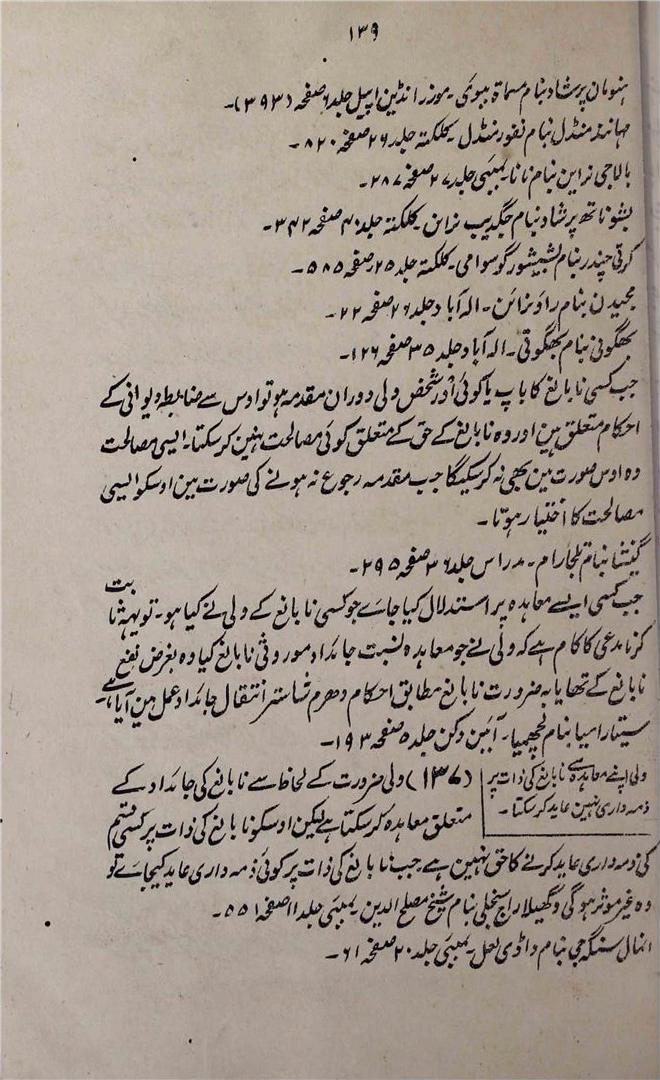 ۱۳۹
ہنومان پرشاد بنام مسماۃ ببوی۔ موزز انڈین اپیل جلد ۶ صفحہ (۳۹۳)۔
مہانند منڈل بنام نفور منڈل۔ کلکتہ جلد ۲۶ صفحہ ۸۲۰۔
بالاجی نراین بنام نانا۔ بمبئی جلد ۲۷ صفحہ ۲۸۷۔
بشوناتھ پرشاد بنام جگدیپ نراین۔ کلکتہ جلد ۴۰ صفحہ ۳۴۲۔
کرتی چندر بنام بشیشور گوسوامی۔ کلکتہ جلد ۲۵ صفحہ ۵۸۵۔
مجیدن بنام راو نرائن۔ الہ آباد جلد ۲۶ صفحہ ۲۲۔
بھگونی بنام بھگوتی۔ الہ آباد جلد ۳۵ صفحہ ۱۲۶۔
جب کسی نابالغ کا باپ یا کوئی اور شخص ولی دوران مقدمہ ہو تو اوس سے ضابطہ دیوانی کے
احکام متعلق ہین اور وہ نابالغ کے حق کے متعلق کوئی مصالحت نہین کر سکتا۔ ایسی مصالحت
وہ اوس صورت مین بھی نہ کر سکیگا جب مقدمہ رجوع نہ ہونے کی صورت مین اوسکو ایسی
مصالحت کا اختیار ہوتا۔
گنیشا بنام تلجارام۔ مدراس جلد ۳۶ صفحہ ۲۹۵۔
جب کسی ایسے معاہدہ پر استدلال کیا جاے جو کسی نابالغ کے ولی نے کیا ہو۔ تو یہہ ثابت
کرنا مدعی کا کام ہے کہ ولی نے جو معاہدہ نسبت جائداد موروثی نابالغ کیا وہ بغرض نفع
نابالغ کے تھا یا بہ ضرورت نابالغ مطابق احکام دھرم شاستر انتقال جائداد عمل مین آیا ہے۔
سیتاراسیا بنام لچھمیا۔ آئین دکن جلد ۵ صفحہ ۱۹۳۔
ولی اپنے معاہدہ سے نابالغ کی ذات پر
ذمہ داری نہین عاید کر سکتا۔
(۱۳۷) ولی ضرورت کے لحاظ سے نابالغ کی جائداد کے
متعلق معاہدہ کر سکتا ہے لیکن اوسکو نابالغ کی ذات پر کسی قسم
کی ذمہ داری عاید کرنے کا حق نہین ہے۔ جب نابالغ کی ذات پر کوئی ذمہ داری عاید کیجاے تو
وہ غیر موثر ہوگی وگھیلا راج سنجلی بنام شیخ مصلح الدین۔ بمبئی جلد ۱۱ صفحہ ۵۵۱۔
انہال سنگہ جی بنام واڈی لعل۔ بمبئی جلد ۲۰ صفحہ ۶۱۔